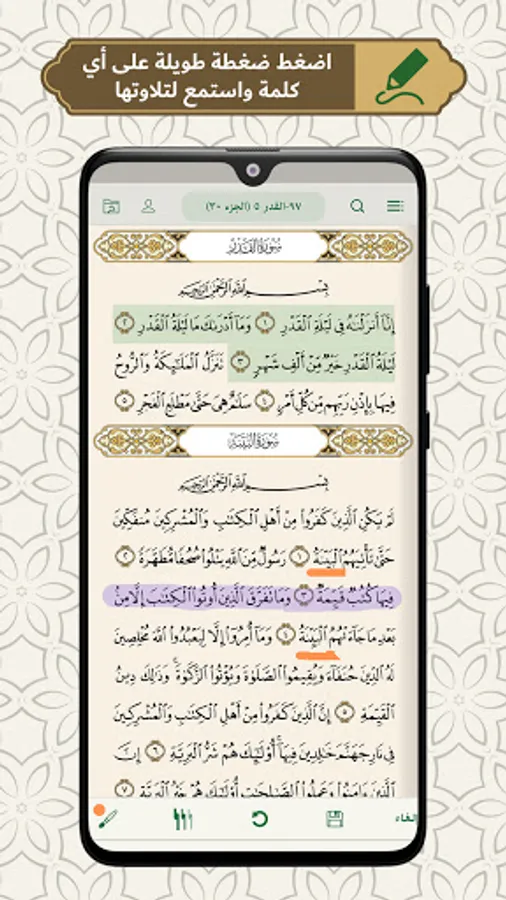 اضغط ضغطة طويلة على أي
كلمة واستمع لتلاوتها
٩٧-القدر ٥ (الجزء ٣٠)
سُورَةُ القَدْرِ
بِسْمِ اللَّهِ الرَّحْمَٰنِ الرَّحِيمِ
إِنَّا أَنزَلْنَٰهُ فِي لَيْلَةِ الْقَدْرِ ١ وَمَا أَدْرَىٰكَ مَا لَيْلَةُ الْقَدْرِ ٢
لَيْلَةُ الْقَدْرِ خَيْرٌ مِّنْ أَلْفِ شَهْرٍ ٣ تَنَزَّلُ الْمَلَٰٓئِكَةُ وَالرُّوحُ
فِيهَا بِإِذْنِ رَبِّهِم مِّن كُلِّ أَمْرٍ ٤ سَلَٰمٌ هِيَ حَتَّىٰ مَطْلَعِ الْفَجْرِ ٥
سُورَةُ البَيِّنَةِ
بِسْمِ اللَّهِ الرَّحْمَٰنِ الرَّحِيمِ
لَمْ يَكُنِ الَّذِينَ كَفَرُوا مِنْ أَهْلِ الْكِتَٰبِ وَالْمُشْرِكِينَ مُنفَكِّينَ
حَتَّىٰ تَأْتِيَهُمُ الْبَيِّنَةُ ١ رَسُولٌ مِّنَ اللَّهِ يَتْلُوا صُحُفًا مُّطَهَّرَةً ٢
فِيهَا كُتُبٌ قَيِّمَةٌ ٣ وَمَا تَفَرَّقَ الَّذِينَ أُوتُوا الْكِتَٰبَ إِلَّا مِنۢ
بَعْدِ مَا جَآءَتْهُمُ الْبَيِّنَةُ ٤ وَمَآ أُمِرُوٓا إِلَّا لِيَعْبُدُوا اللَّهَ مُخْلِصِينَ
لَهُ الدِّينَ حُنَفَآءَ وَيُقِيمُوا الصَّلَوٰةَ وَيُؤْتُوا الزَّكَوٰةَ ۚ وَذَٰلِكَ دِينُ
الْقَيِّمَةِ ٥ إِنَّ الَّذِينَ كَفَرُوا مِنْ أَهْلِ الْكِتَٰبِ وَالْمُشْرِكِينَ
فِي نَارِ جَهَنَّمَ خَٰلِدِينَ فِيهَآ ۚ أُولَٰٓئِكَ هُمْ شَرُّ الْبَرِيَّةِ ٦ إِنَّ
الَّذِينَ ءَامَنُوا وَعَمِلُوا الصَّٰلِحَٰتِ أُولَٰٓئِكَ هُمْ خَيْرُ الْبَرِيَّةِ ٧